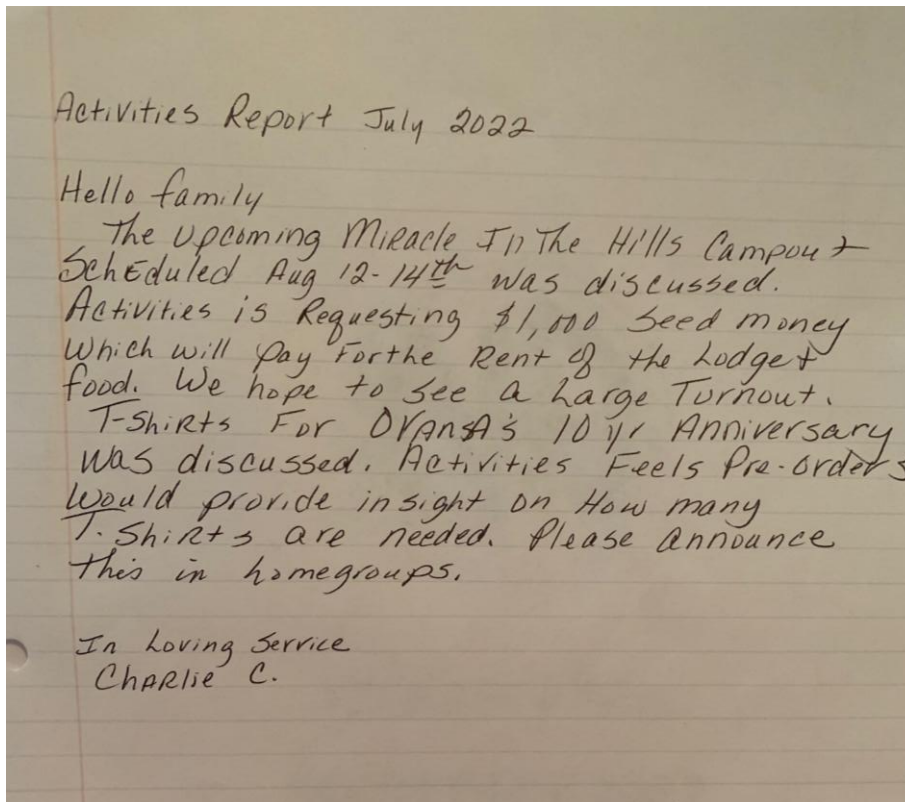 Activities Report July 2022
Hello family
The Upcoming Miracle In The Hills Campout
Scheduled Aug 12-14th was discussed.
Activities is Requesting $1,000 Seed money
Which will Pay For the Rent of the Lodge +
food. We hope to see a Large Turnout.
T-Shirts For OVANSA's 10 yr Anniversary
was discussed. Activities Feels Pre-orders
Would provide insight on How many
T-Shirts are needed. Please announce
this in homegroups.
In Loving Service
Charlie C.